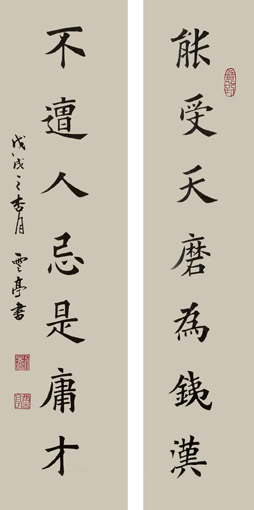 能受天磨為鐵漢
不遭人忌是庸才
戊戌之杏月 雲亭書